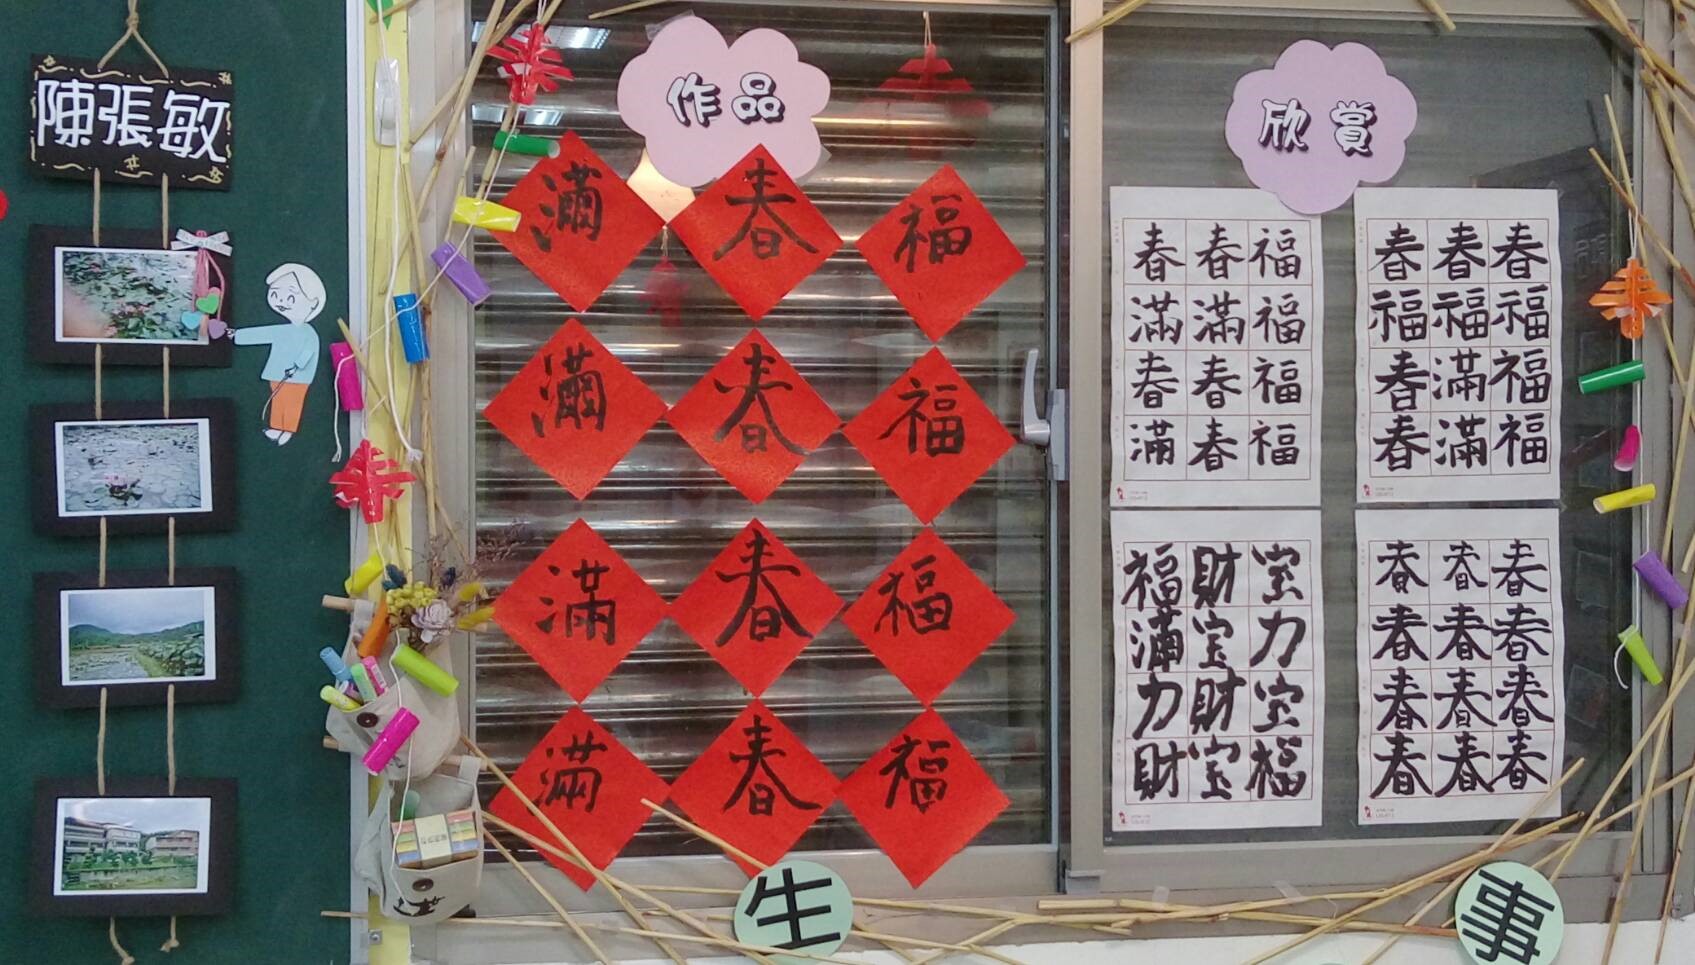 陳張敏
作品
欣賞
滿 春 福
滿 春 福
滿 春 福
滿 春 福
春 春 福
滿 滿 福
春 春 福
滿 春 福
春 春 春
福 福 福
春 滿 福
春 滿 福
福 財 宝
滿 宝 力
力 財 宝
財 宝 福
春 春 春
春 春 春
春 春 春
春 春 春
生
事